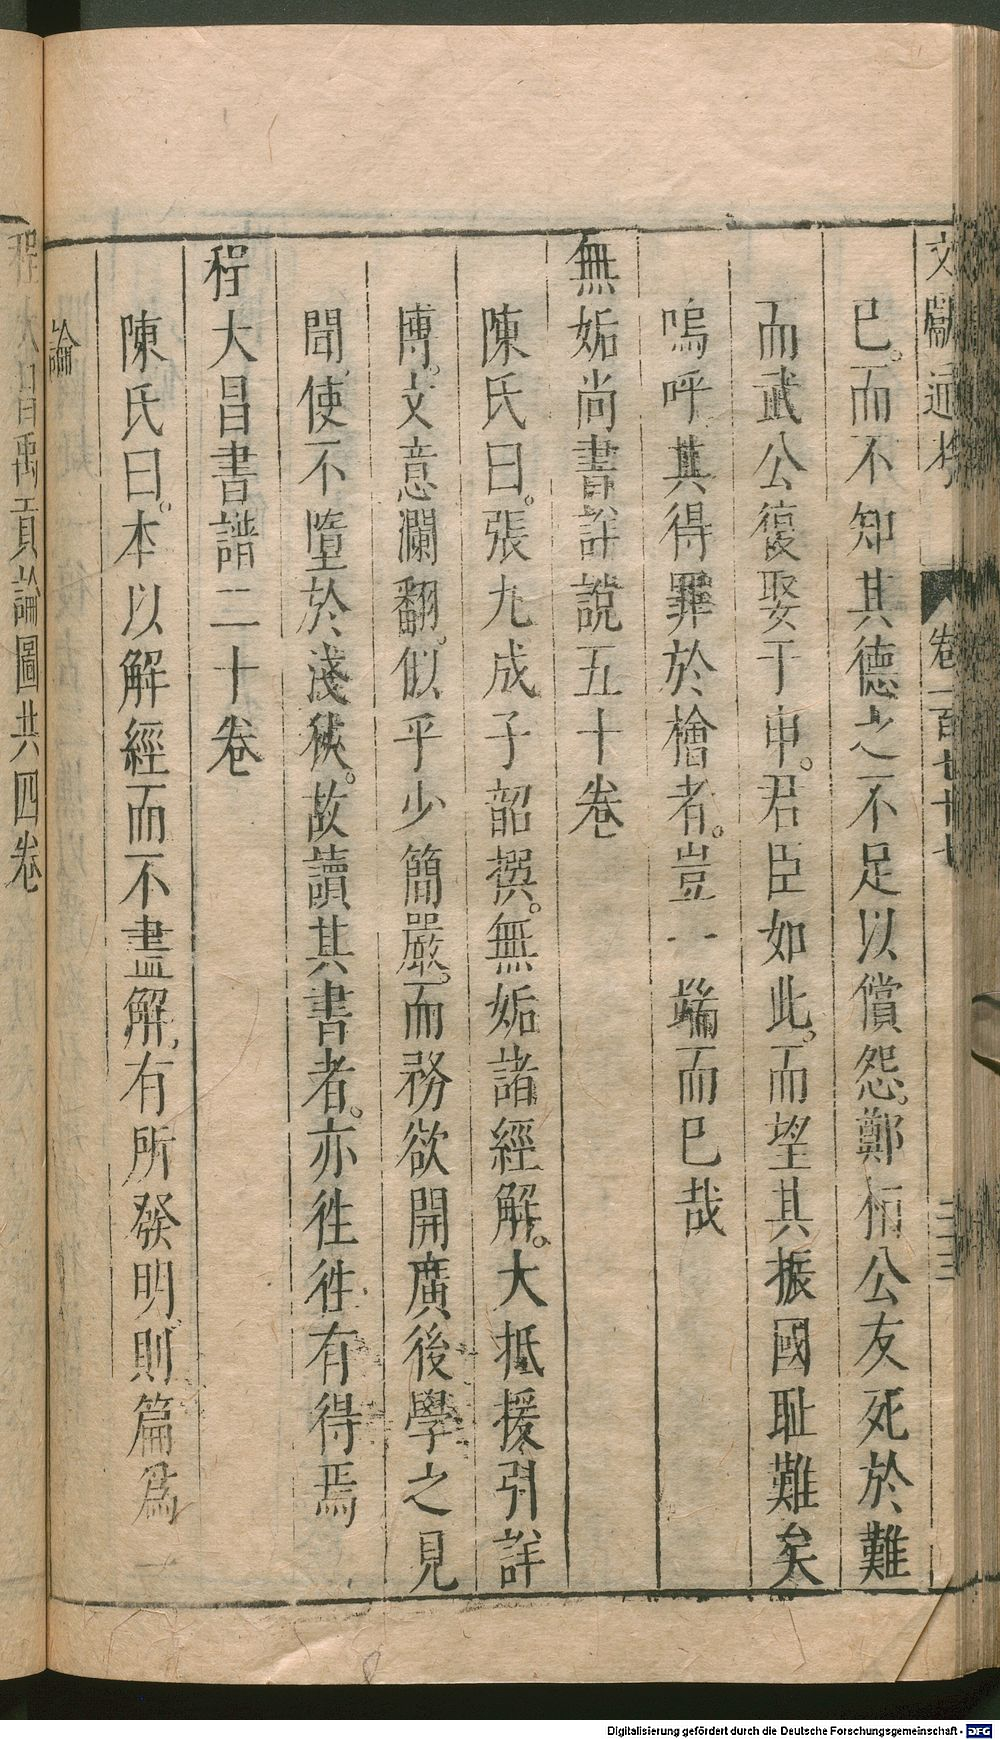 文獻通考 卷一百七十七 二十三
已。而不知其德之不足以償怨。鄭栢公友死於難
而武公復娶于申。君臣如此。而望其振國耻難矣
嗚呼其得罪於檜者。豈一端而已哉
無妬尚書詳說五十卷
陳氏曰。張九成子韶撰。無妬諸經解。大抵援引詳
博。文意瀾翻。似乎少簡嚴。而務欲開廣後學之見
聞。使不墮於淺狹。故讀其書者。亦徃徃有得焉
程大昌書譜二十卷
陳氏曰。本以解經而不盡解。有所發明。則篇爲一
論
程大昌禹貢論圖共四卷
Digitalisierung gefördert durch die Deutsche Forschungsgemeinschaft - DFG